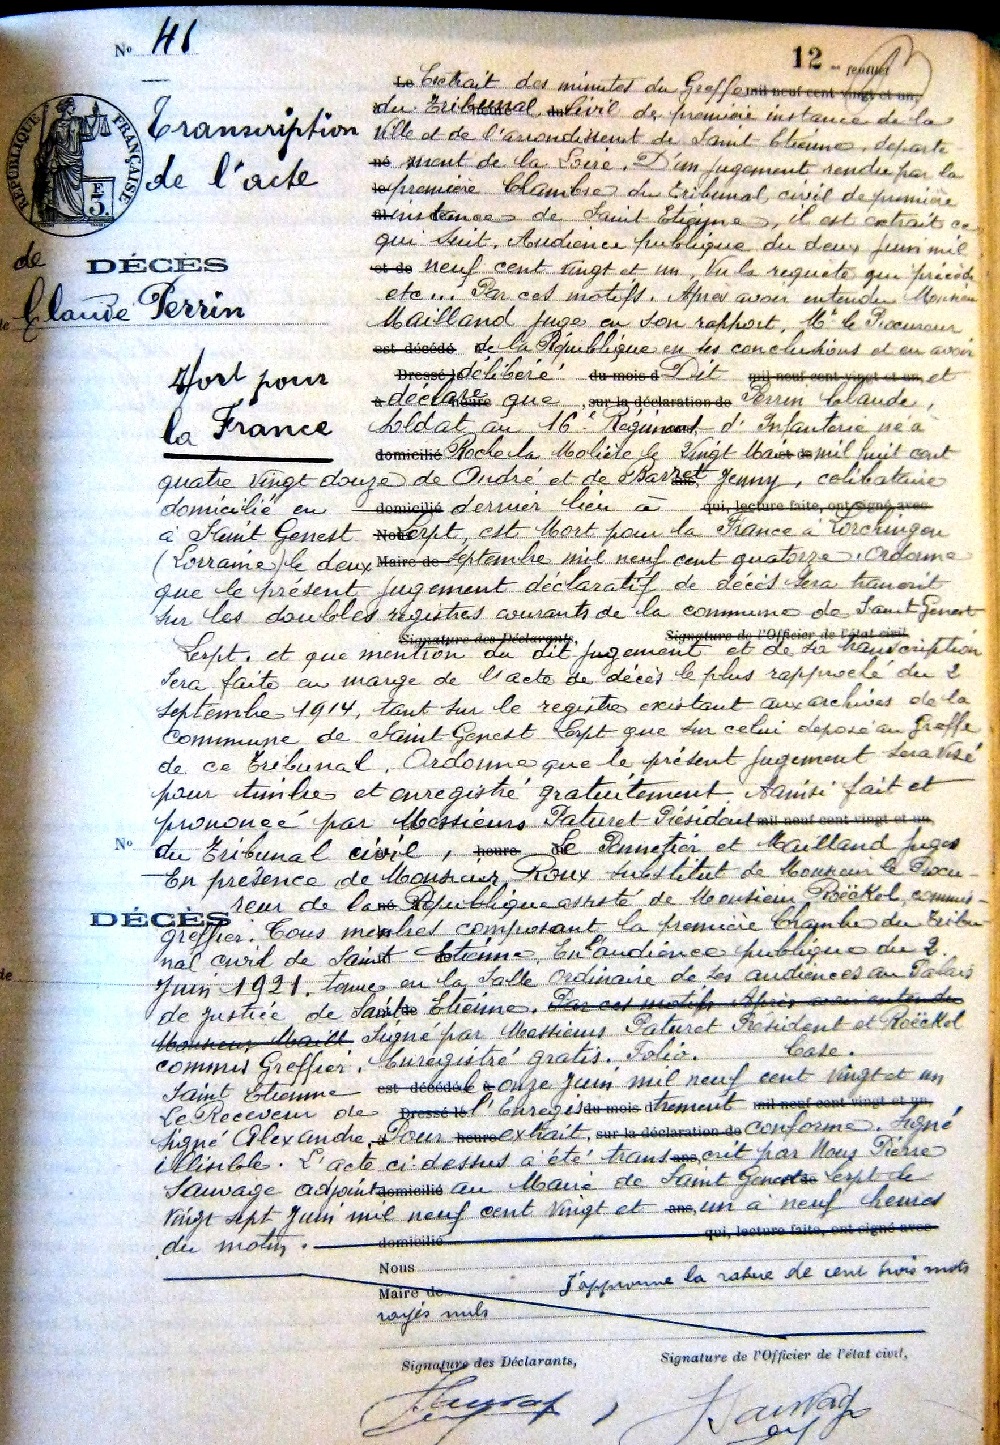 N° 41
12 -
RÉPUBLIQUE FRANÇAISE
E
5.
Transcription
de l'acte
de
DÉCÈS
Claude Perrin
Mort pour
la France
Le Extrait des minutes du Greffe mil neuf cent vingt et un,
du Tribunal Civil de première instance de la
Ville et de l'arrondissement de Saint Etienne, départe-
né ment de la Loire. D'un jugement rendu par la
le première Chambre du Tribunal civil de première
instance de Saint Etienne, il est extrait ce
qui suit. Audience publique du deux Juin mil
et de neuf cent vingt et un, Vu la requête qui précède
etc... Par ces motifs. Après avoir entendu Monsieur
Mailland juge en son rapport, Mr le Procureur
est décédé de la République en ses conclusions et en avoir
Dressé délibéré du mois d Dit mil neuf cent vingt et un et
à déclare heure que, sur la déclaration de Perrin Claude,
soldat au 16e Régiment d'Infanterie né à
domicilié Roche la Molière le Vingt Mai mil huit cent
quatre vingt douze de André et de Barret Jenny, célibataire
domicilié en domicilié dernier lieu à qui, lecture faite, ont signé avec
à Saint Genest Nous Lerpt, est Mort pour la France à
(Lorraine) le deux Maire de Septembre mil neuf cent quatorze. Ordonne
que le présent jugement déclaratif de décès sera transcrit
sur les doubles registres courants de la commune de Saint Genest
Signature des Déclarants, Signature de l'Officier de l'état civil,
Lerpt. et que mention du dit jugement et de sa transcription
sera faite en marge de l'acte de décès le plus rapproché du 2
septembre 1914, tant sur le registre existant aux archives de la
commune de Saint Genest Lerpt que sur celui déposé au Greffe
de ce Tribunal. Ordonne que le présent jugement sera visé
pour timbre et enregistré gratuitement Aainsi fait et
prononcé par Messieurs Paturet Président mil neuf cent vingt et un,
N° du Tribunal civil, heure de Pennetier et Mailland juges
En présence de Monsieur Roux substitut de Monsieur le Procu-
reur de la né République assisté de Monsieur Roëckel, commis-
DÉCÈS
greffier. Tous membres composant la première Chambre du Tribu-
nal civil de Saint Etienne. En l'audience publique du 2
de
Juin 1921. tenue en la Salle ordinaire de ses audiences au Palais
de justice de Saint Etienne. Par ces motifs Après avoir entendu
Monsieur Maill Signé par Messieurs Paturet Président et Roëckel
commis Greffier. Enregistré gratis. Folio. Case.
Saint Etienne est décédé le onze Juin mil neuf cent vingt et un
Le Receveur de Dressé le l'Enregis du mois d trement mil neuf cent vingt et un,
signé Alexandre, à Pour heure extrait, sur la déclaration de conforme. Signé
illisible. L'acte ci-dessus a été trans ans, crit par Nous Pierre
Sauvage adjoint domicilié au Maire de Saint Genest Lerpt de
vingt sept Juin mil neuf cent vingt et ans, un à neuf heures
du matin. domicilié qui, lecture faite, ont signé avec
Nous
Maire de J'approuve la rature de cent trois mots
rayés nuls
Signature des Déclarants, Signature de l'Officier de l'état civil,
Sauvage